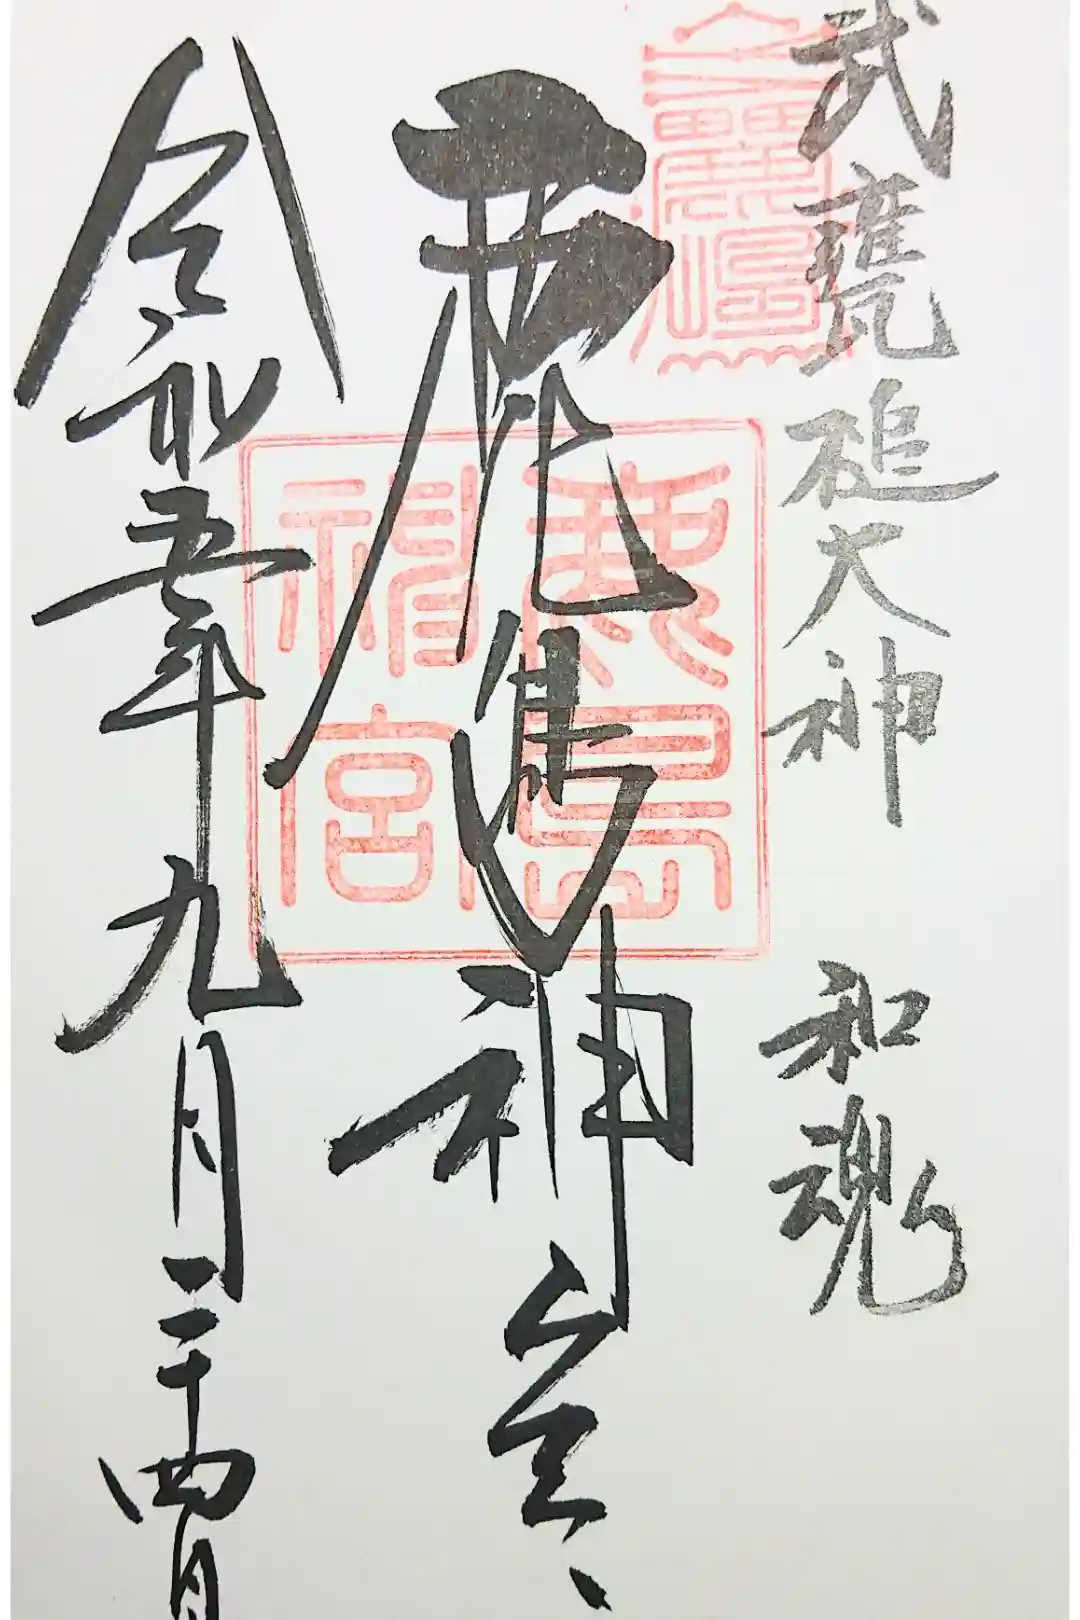 武甕槌大神 和魂
鹿島神宮
令和五年九月二十四日
鹿島
神宮